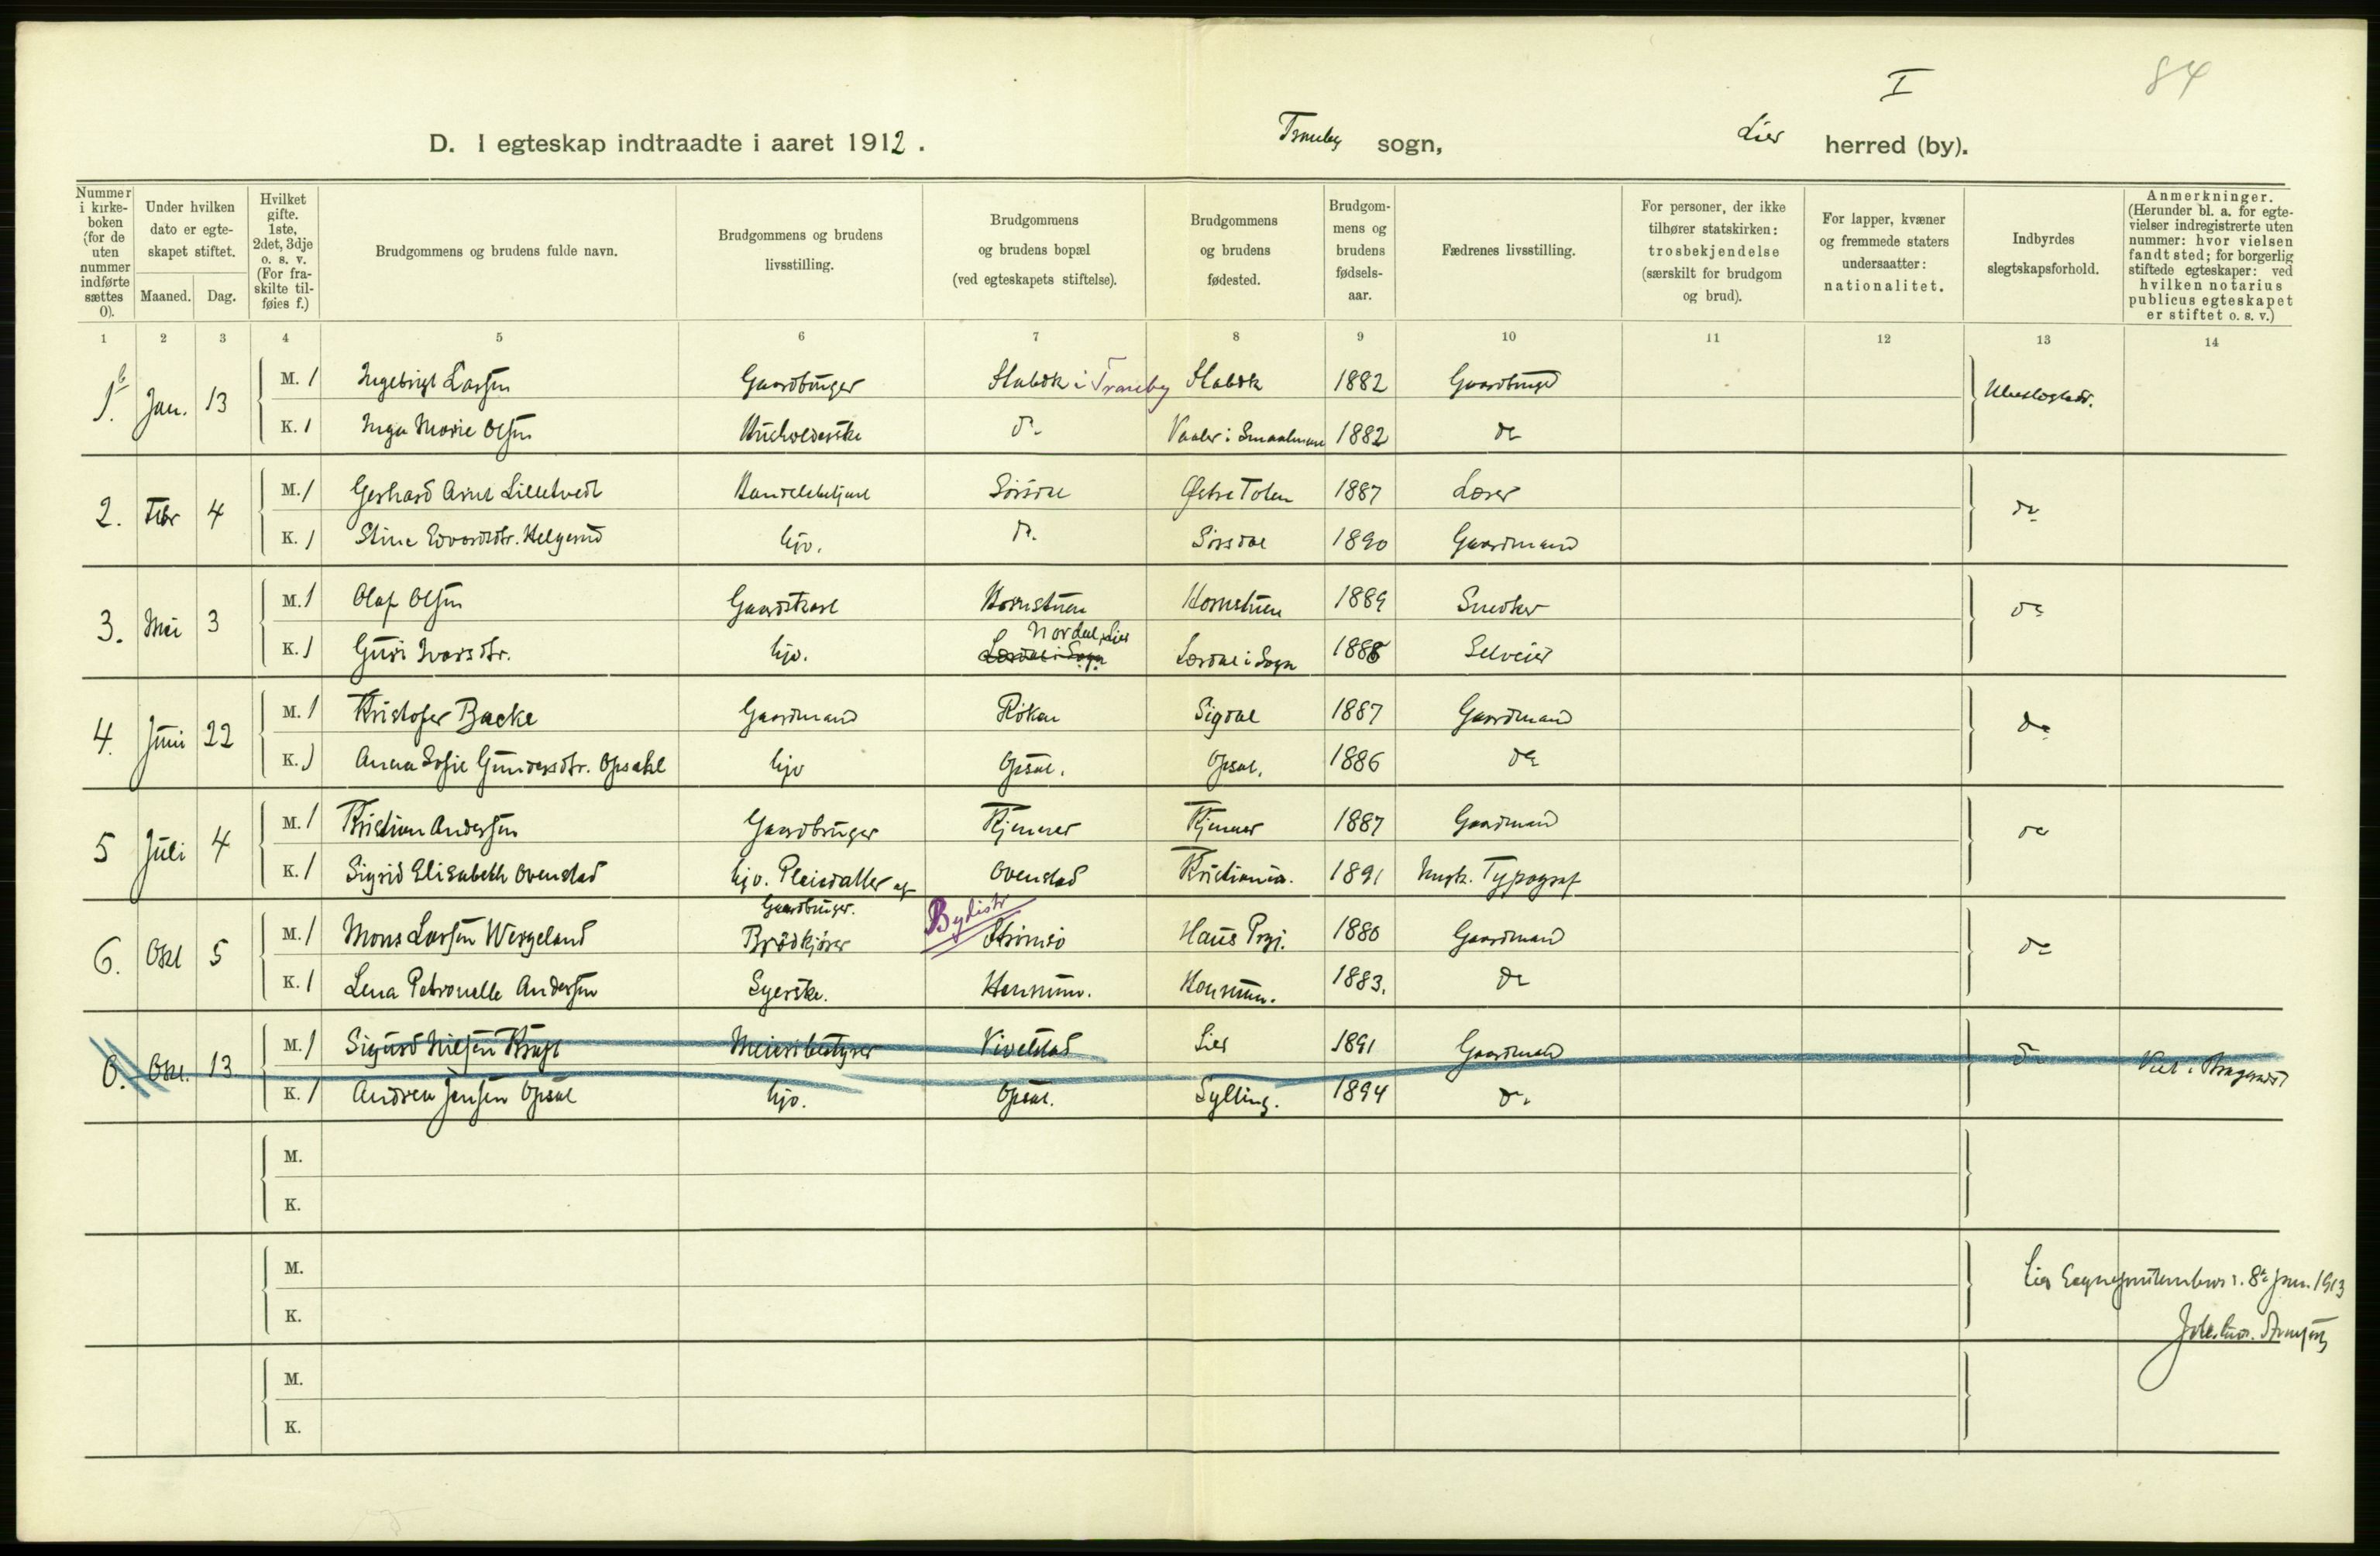 I
84
D. I egteskap indtraadte i aaret 1912. Tranby sogn, Lier herred (by).
Nummer i kirkeboken (for de uten nummer indførte sættes 0).
Under hvilken dato er egteskapet stiftet.
Maaned. Dag.
Hvilket gifte. 1ste, 2det, 3dje o. s. v. (For fraskilte tilføies f.)
Brudgommens og brudens fulde navn.
Brudgommens og brudens livsstilling.
Brudgommens og brudens bopæl (ved egteskapets stiftelse).
Brudgommens og brudens fødested.
Brudgommens og brudens fødselsaar.
Fædrenes livsstilling.
For personer, der ikke tilhører statskirken: trosbekjendelse (særskilt for brudgom og brud).
For lapper, kvæner og fremmede staters undersaatter: nationalitet.
Indbyrdes slegtskapsforhold.
Anmerkninger. (Herunder bl. a. for egtevielser indregistrerte uten nummer: hvor vielsen fandt sted; for borgerlig stiftede egteskaper: ved hvilken notarius publicus egteskapet er stiftet o. s. v.)
1 2 3 4 5 6 7 8 9 10 11 12 13 14
1. Jan. 13 M. 1 Ingebrigt Larsen Gaardbruger Stabæk i Tranby Stabæk 1882 Gaardbruger Ubeslegtede.
K. 1 Inga Marie Olsen Husholderske do Vaaler i Smaalenene 1882 do
2. Febr 4 M. 1 Gerhard Arne Lilletvedt Handelsbetjent Sørsdal Østre Toten 1887 Lærer do
K. 1 Stine Edvardsdtr. Helgerud hjv. do. Sørsdal 1890 Gaardmand
3. Mai 3 M. 1 Olaf Olsen Gaardskarl Hornstuen Hornstuen 1889 Snedker do
K. 1 Guri Ivarsdtr. hjv. Lærdal i Sogn Nordal, Lier Lærdal i Sogn 1888 Selveier
4. Juni 22 M. 1 Kristofer Backe Gaardmand Röken Sigdal 1887 Gaardmand do
K. 1 Anna Sofie Gundersdtr. Opsahl hjv Opsal. Opsal. 1886 do
5 Juli 4 M. 1 Kristian Andersen Gaardbruger Kjenner Kjenner 1887 Gaardmand do
K. 1 Sigrid Elisabeth Ovenstad hjv. Pleiedatter af Gaardbruger. Ovenstad Kristiania. 1891 Typograf
6. Okt 5 M. 1 Mons Larsen Wergeland Brødkjører Bydistr Strömsö Haus Prgj. 1880 Gaardmand do
K. 1 Lena Petronelle Andersen Syerske. Hennum. Hennum. 1883. do
0. Okt. 13 M. 1 Sigurd Nilsen Kraft Meieribestyrer Vivelstad Lier 1891 Gaardmand do Viet i Bragernes
K. 1 Andrea Jensen Opsal hjv. Opsal. Sylling. 1894 do.
M.
K.
M.
K.
Lier Sogneprestembede 8de Jan. 1913
M.
K.